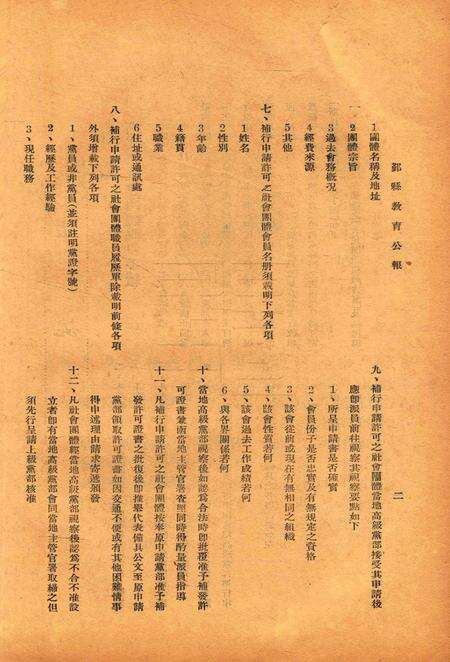 鄞縣教育公報
二
1團體名稱及地址
2團體宗旨
3過去會務概況
4經費來源
5其他
七、補行申請許可之社會團體會員名册須載明下列各項
1姓名
2性別
3年齡
4籍貫
5職業
6住址或通訊處
八、補行申請許可之社會團體職員履歷單除載明前條各項
外須增載下列各項
1、黨員或非黨員(並須註明黨證字號)
2、經歷及工作經驗
3、現任職務
九、補行申請許可之社會團體當地高級黨部接受其申請後
應卽派員前往視察其視察要點如下
1、所呈申請書是否確實
2、會員份子是否忠實及有無規定之資格
3、該會從前或現在有無相同之組織
4、該會性質若何
5、該會過去工作成績若何
6、與各界關係若何
十、當地高級黨部視察後如認爲合法時卽批覆准予補發許
可證書兼函當地主管官署查照同時得酌量派員指導
十一、凡補行申請許可之社會團體按奉原申請黨部准予補
發許可證書之批復後卽推舉代表備具公文至原申請
黨部領取許可證書如因交通不便或有其他困難情事
得申述理由請求寄遞頒發
十二、凡社會團體經當地高級黨部視察後認爲不合不准設
立者卽有當地高級黨部會同當地主管官署取締之但
須先行呈請上級黨部核准